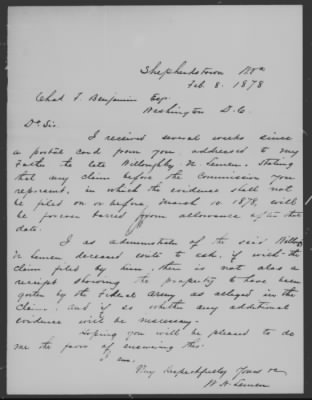 Shepherdstown W.Va
Feb. 8. 1878
Chas F. Benjamin Esq.
Washington D.C.
Dr Sir.
I received several weeks since
a postal card from you addressed to my
Father the late Willoughby N. Lemen. Stating
that any claim before the Commission you
represent, in which the evidence shall not
be filed on or before, March 10. 1878, will
be forever barred from allowance after this
date.
I as administrator of the said Willoby
N. Lemen deceased write to ask. if with the
claim filed by him, there is not also a
receipt showing the property to have been
gotten by the Federal Army as alleged in the
claim. And if so whether any additional
evidence will be necessary.
Hoping you will be pleased to do
me the favor of answering this.
I am.
Very Respectfully Yours &c,
W. N. Lemen